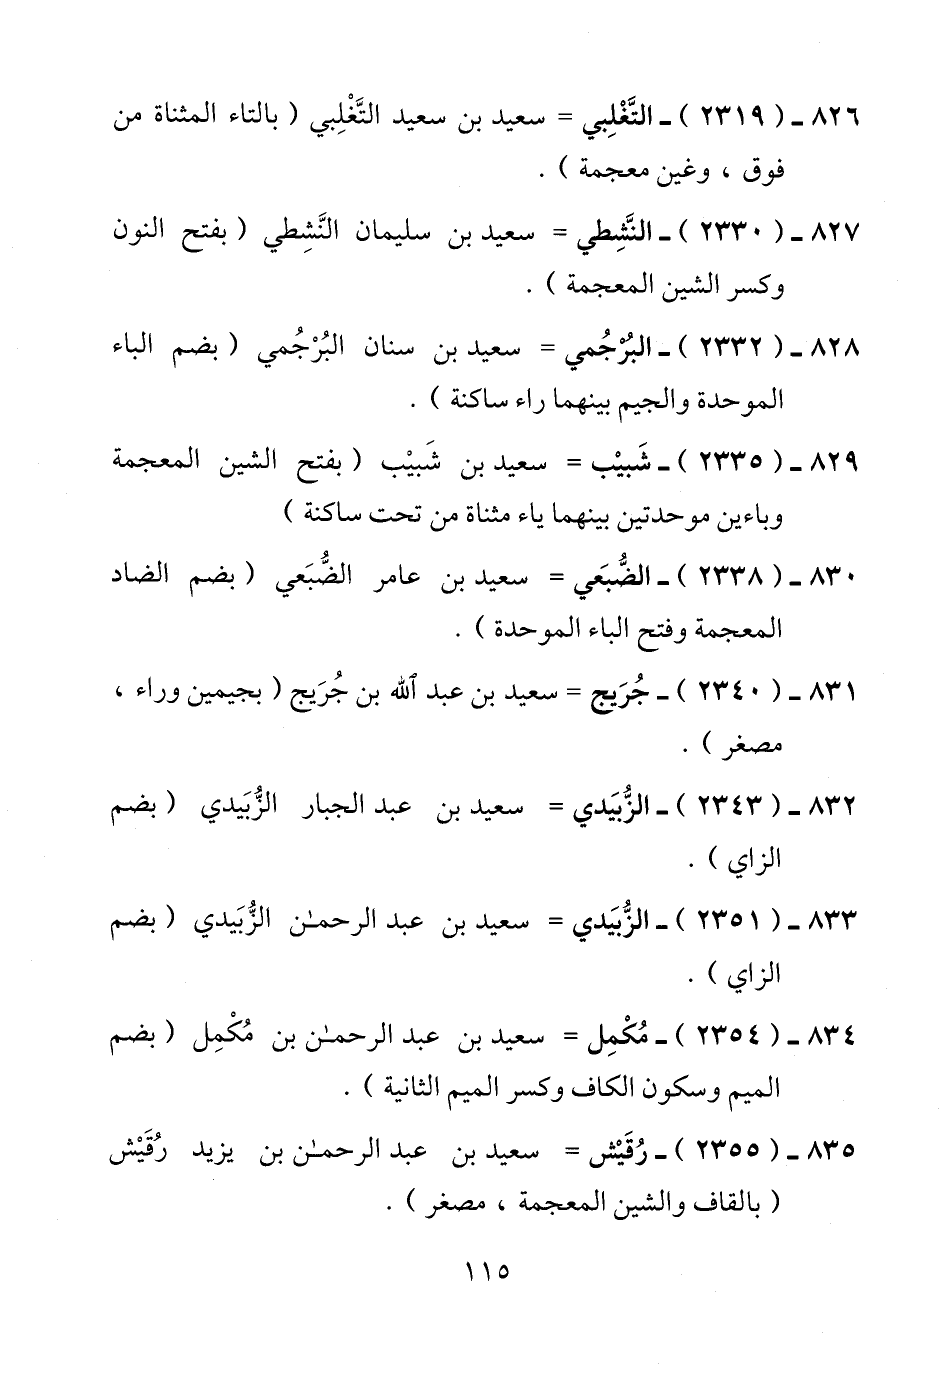 ٨٢٦ ـ ( ٢٣١٩ ) ـ التَّغْلِبي = سعيد بن سعيد التَّغْلِبي ( بالتاء المثناة من
فوق ، وغين معجمة ) .
٨٢٧ ـ ( ٢٣٣٠ ) ـ النَّشِطي = سعيد بن سليمان النَّشِطي ( بفتح النون
وكسر الشين المعجمة ) .
٨٢٨ ـ ( ٢٣٣٢ ) ـ البُرْجُمي = سعيد بن سنان البُرْجُمي ( بضم الباء
الموحدة والجيم بينهما راء ساكنة ) .
٨٢٩ ـ ( ٢٣٣٥ ) ـ شَبيْب = سعيد بن شَبيْب ( بفتح الشين المعجمة
وباءين موحدتين بينهما ياء مثناة من تحت ساكنة )
٨٣٠ ـ ( ٢٣٣٨ ) ـ الضُّبَعي = سعيد بن عامر الضُّبَعي ( بضم الضاد
المعجمة وفتح الباء الموحدة ) .
٨٣١ ـ ( ٢٣٤٠ ) ـ جُرَيج = سعيد بن عبد ٱلله بن جُرَيج ( بجيمين وراء ،
مصغر ) .
٨٣٢ ـ ( ٢٣٤٣ ) ـ الزُّبَيدي = سعيد بن عبد الجبار الزُّبَيدي ( بضم
الزاي ) .
٨٣٣ ـ ( ٢٣٥١ ) ـ الزُّبَيدي = سعيد بن عبد الرحمـٰن الزُّبَيدي ( بضم
الزاي ) .
٨٣٤ ـ ( ٢٣٥٤ ) ـ مُكْمِل = سعيد بن عبد الرحمـٰن بن مُكْمِل ( بضم
الميم وسكون الكاف وكسر الميم الثانية ) .
٨٣٥ ـ ( ٢٣٥٥ ) ـ رُقَيْش = سعيد بن عبد الرحمـٰن بن يزيد رُقَيْش
( بالقاف والشين المعجمة ، مصغر ) .
١١٥